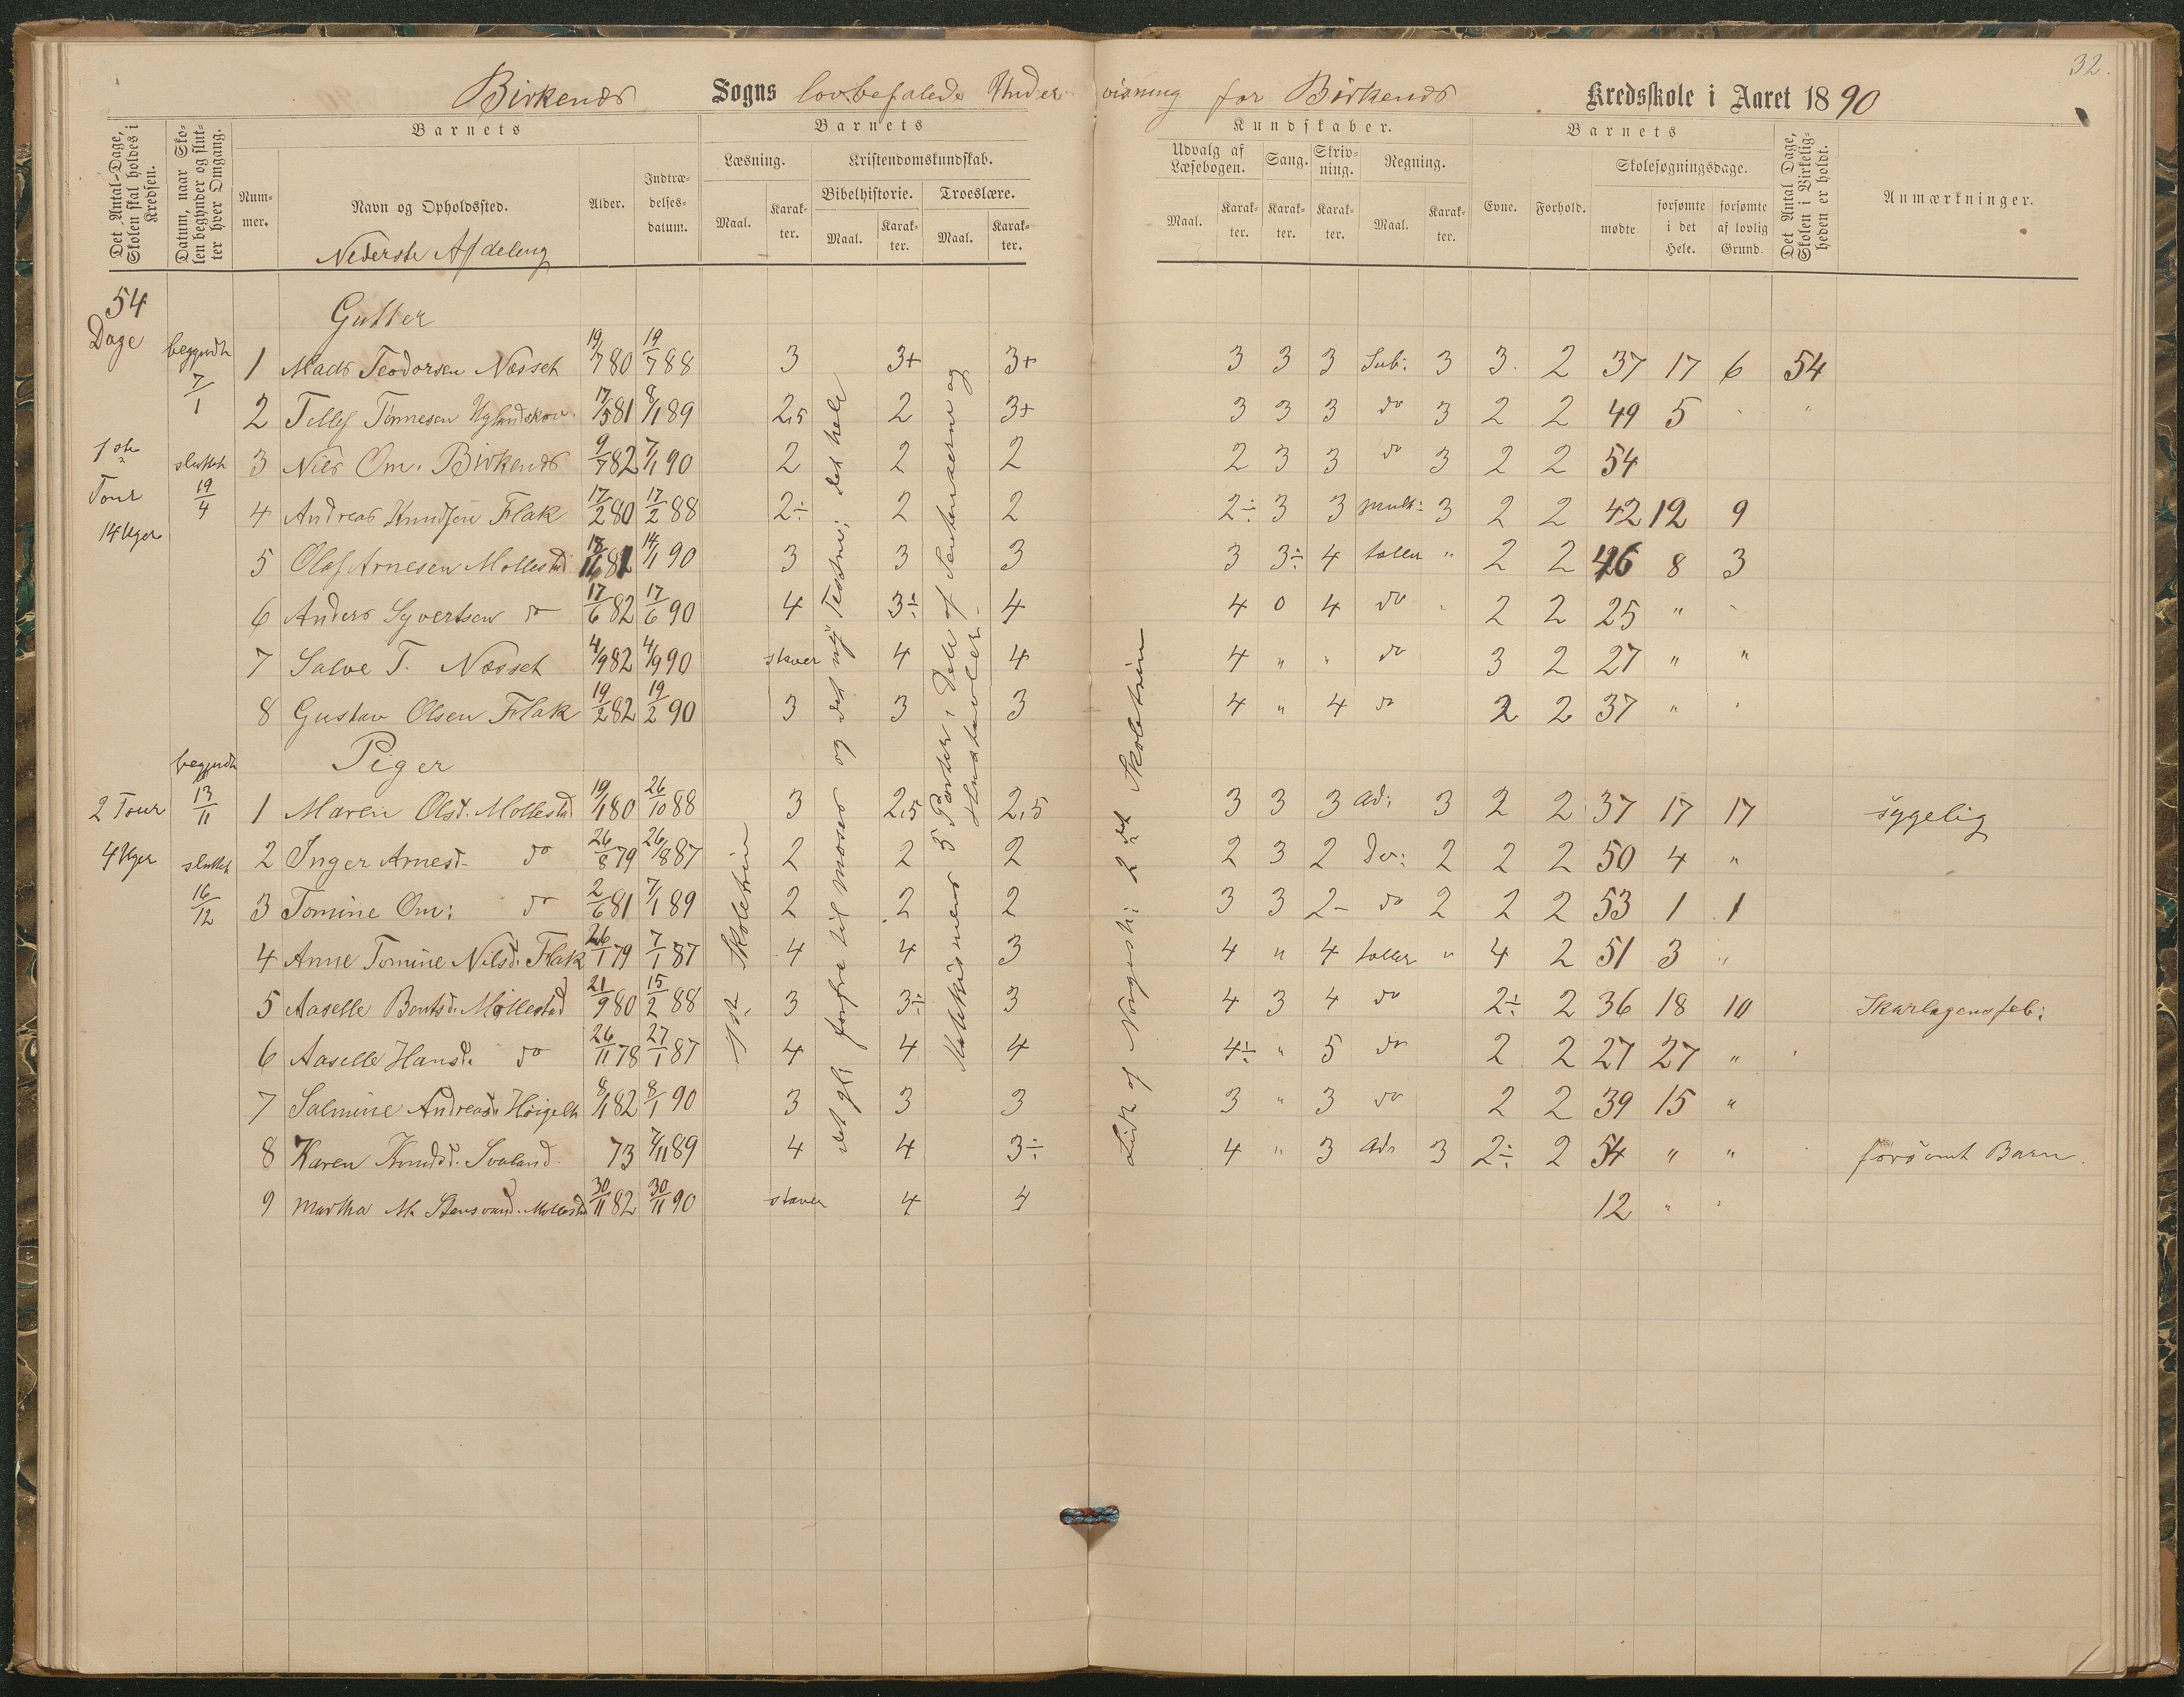 32.
Birkenæs Sogns lovbefalede Undervisning for Birkenæs Kredsskole i Aaret 1890
Det Antal Dage, Skolen skal holdes i Kredsen.
Datum, naar Skolen begynder og slutter hver Omgang.
Barnets
Nummer.
Navn og Opholdssted.
Nederste Afdeling
Alder.
Indtrædelsesdatum.
Barnets
Læsning.
Maal.
Karakter.
Kristendomskundskab.
Bibelhistorie.
Maal.
Karakter.
Troeslære.
Maal.
Karakter.
Kundskaber.
Udvalg af Læsebogen.
Maal.
Karakter.
Sang.
Karakter.
Skrivning.
Karakter.
Regning.
Maal.
Karakter.
Barnets
Evne.
Forhold.
Skolesøgningsdage.
mødte
forsømte i det Hele.
forsømte af lovlig Grund.
Det Antal Dage, Skolen i Virkeligheden er holdt.
Anmærkninger.
54 Dage
begyndte 7/1
1ste Tour
14 Uger
sluttet 19/4
Gutter
1 Mads Teodorsen Næsset 19/7 80 19/7 88 3 3+ 3+ 3 3 3 Sub: 3 3 2 37 17 6 54
2 Tellef Tønnesen 17/5 81 8/1 89 2,5 2 3+ 3 3 3 do 3 2 2 49 5 "
3 Nils Om. Birkenæs 9/7 82 7/1 90 2 2 2 2 3 3 do 3 2 2 54
4 Andreas Knudsen Flak 17/2 80 17/2 88 2÷ 2 2 2÷ 3 3 mult: 3 2 2 42 12 9
5 Olaf Arnesen Mollestad 81 14/1 90 3 3 3 3 3÷ 4 tæller " 2 2 46 8 3
6 Anders Syvertsen do 17/6 82 17/6 90 4 3÷ 4 4 0 4 do 2 2 25 "
7 Salve T. Næsset 4/9 82 4/9 90 staver 4 4 4 " " do 3 2 27 " "
8 Gustav Olsen Flak 19/2 82 19/2 90 3 3 3 4 " 4 do 2 2 37 " "
Piger
begyndte 13/11
2 Tour
4 Uger
sluttet 16/12
1 Maren Olsd. Mollestad 19/1 80 26/10 88 3 2,5 2,5 3 3 3 Ad: 3 2 2 37 17 17 sygelig
2 Inger Arnesd. do 26/8 79 26/8 87 2 2 2 2 3 2 Do: 2 2 2 50 4 "
3 Tomine Om: do 2/6 81 7/1 89 2 2 2 3 3 2- do 2 2 2 53 1 1
4 Anne Tomine Nilsd. Flak 26/1 79 7/1 87 4 4 3 4 " 4 tæller " 4 2 51 3 "
5 Aaselle Bentsd. Mollestad 21/9 80 15/2 88 3 3÷ 3 4 3 4 do 2÷ 2 36 18 10 Skarlagensfeb:
6 Aaselle Hansd. do 26/11 78 27/1 87 4 4 4 4÷ " 5 do 2 2 27 27 "
7 Salmine Andreasd. 8/1 82 8/1 90 3 3 3 3 " 3 do 2 2 39 15 "
8 Karen Knudsd. Svaland 73 7/11 89 4 4 3÷ 4 " 3 Ad: 3 2÷ 2 54 " " forsømt Barn.
9 Martha M. Mollestad 30/11 82 30/11 90 staver 4 4 12 " "
1ste Skoletrin
det gl: forfra til Moses og det ny Testm: det hele
Katekismens 5 Parter, Dele af Sentenserne og Hustavlen.
Lidt af Norgesh: 2det Skoletrin